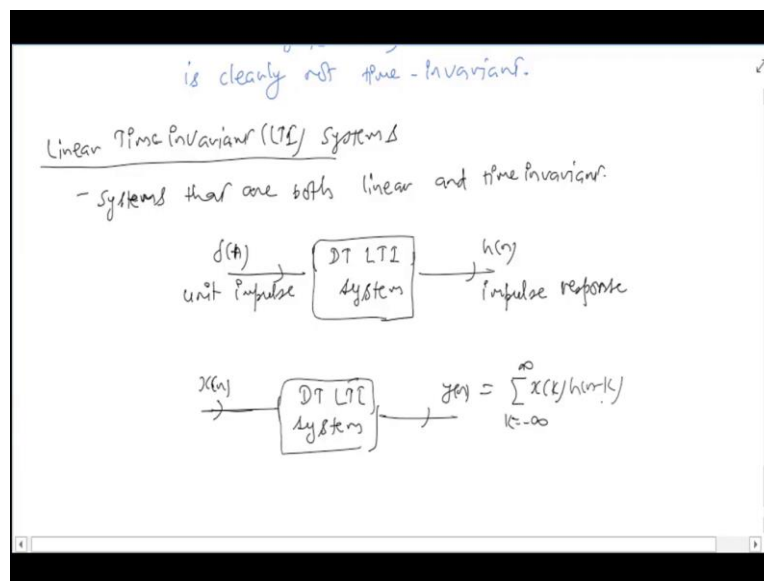 is clearly not time-invariant.
Linear Time Invariant (LTI) Systems
- Systems that are both linear and time invariant.
δ(n) DT LTI h(n)
unit impulse system impulse response
x(n) DT LTI y(n) = ∞∑k=-∞ x(k) h(n-k)
system